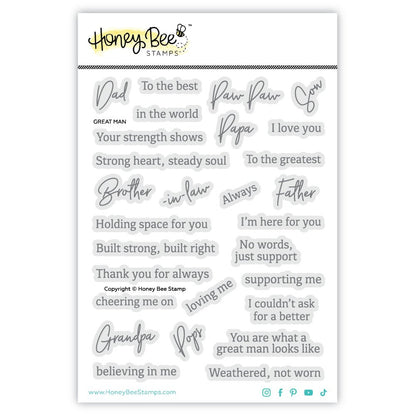 Honey Bee
STAMPS
Dad
To the best
Paw Paw
Son
in the world
GREAT MAN
Papa
I love you
Your strength shows
Strong heart, steady soul
To the greatest
Brother
-in-law
Always
Father
Holding space for you
I'm here for you
Built strong, built right
No words,
just support
Thank you for always
supporting me
Copyright © Honey Bee Stamp
cheering me on
loving me
I couldn't ask
for a better
Grandpa
Pops
You are what a
great man looks like
believing in me
Weathered, not worn
www.HoneyBeeStamps.com